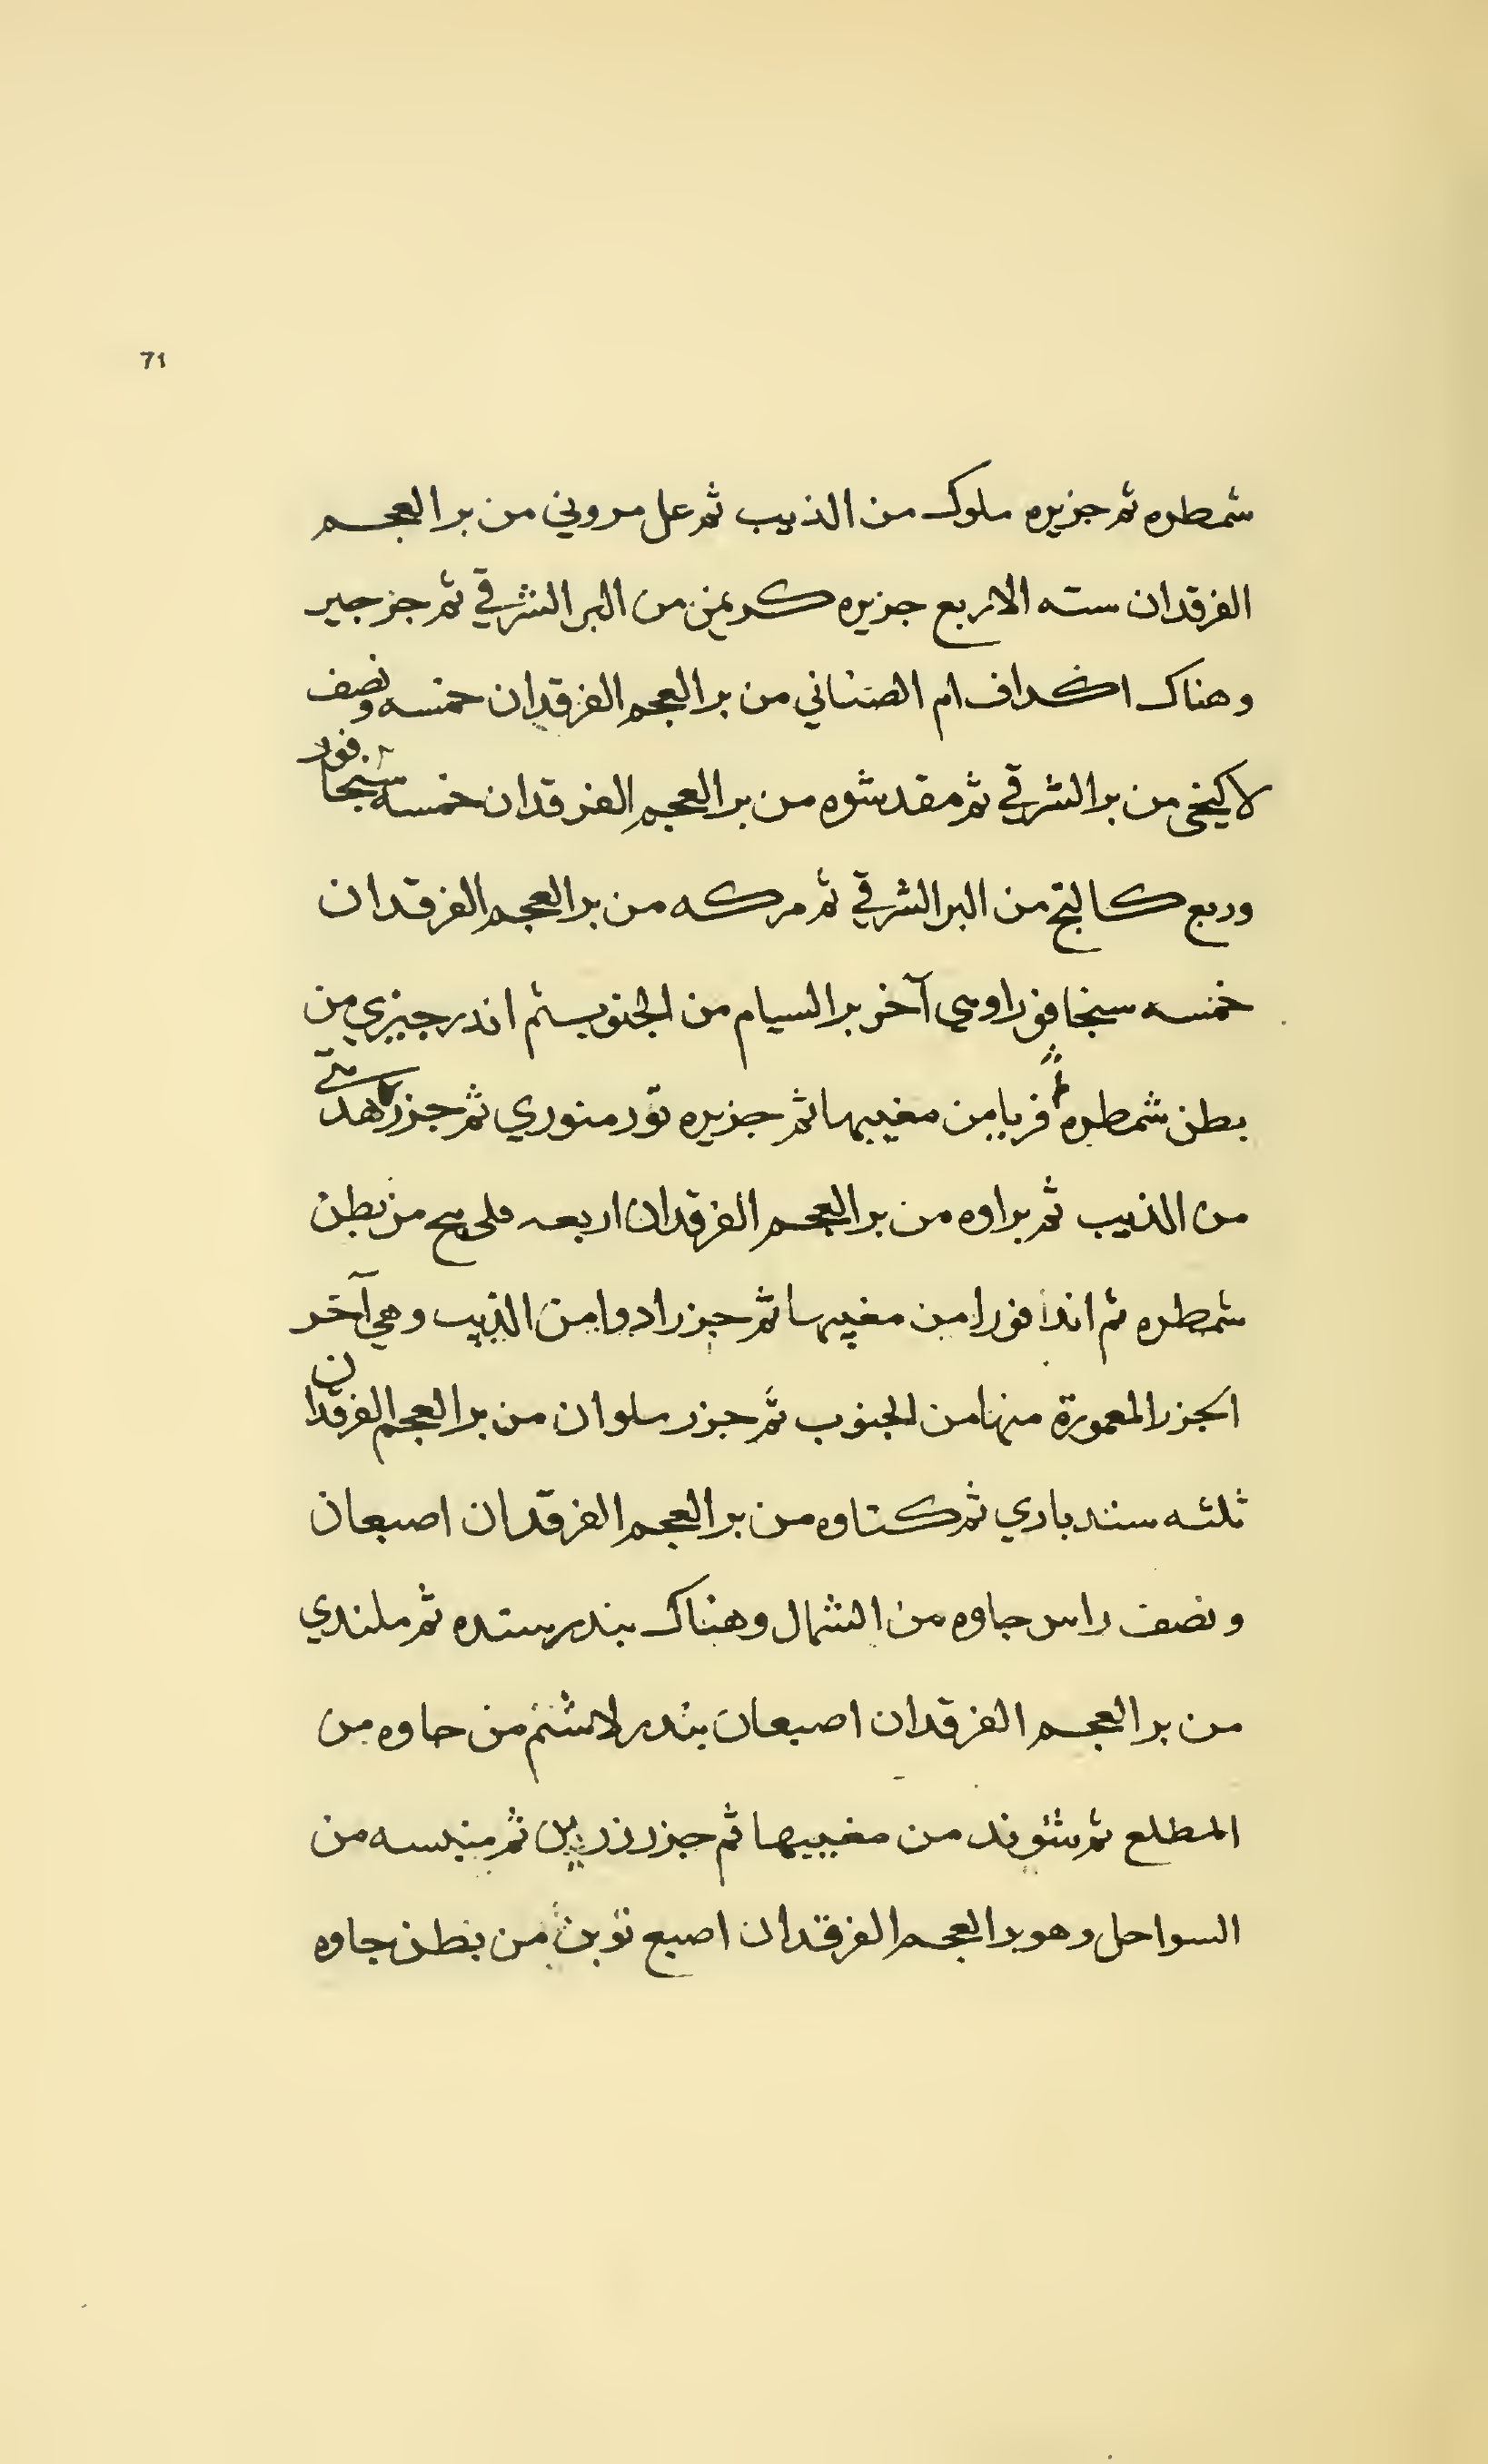 71
شمطره ثم جزيره ملوك من الذيب ثم عل مروني من بر العجم
الفرقدان سته الا ربع جزيره كريمن من البر الشرقي ثم جزجير
وهناك اكداف ام الصناني من بر العجم الفرقدان خمسه ونصف
لا كنجي من بر الشرقي ثم مقدشوه من بر العجم الفرقدان خمسه سنجافور
وربع كالنج من البر الشرقي ثم مركه من بر العجم الفرقدان
خمسه سنجافور اوهي آخر بر السيام من الجنوب ثم اندرجيزي من
بطن شمطره ثم فريامن مغيبها ثم جزيره تورمنوري ثم جزر هدمتي
من الذيب ثم براوه من بر العجم الفرقدان اربعه من بطن
شمطره ثم اندافورا من مغيبها ثم جزر ادوا من الذيب وهي آخر
الجزر المعمورة منها من الجنوب ثم جزر سلوان من بر العجم الفرقدان
ثلثه سندباري ثم كتاوه من بر العجم الفرقدان اصبعان
ونصف راس جاوه من الشمال وهناك بندر سنده ثم ملندي
من بر العجم الفرقدان اصبعان بندر لاشنم من جاوه من
المطلع ثم شوند من مغيبها ثم جزر زرين ثم منبسه من
السواحل وهو بر العجم الفرقدان اصبع توبن من بطن جاوه